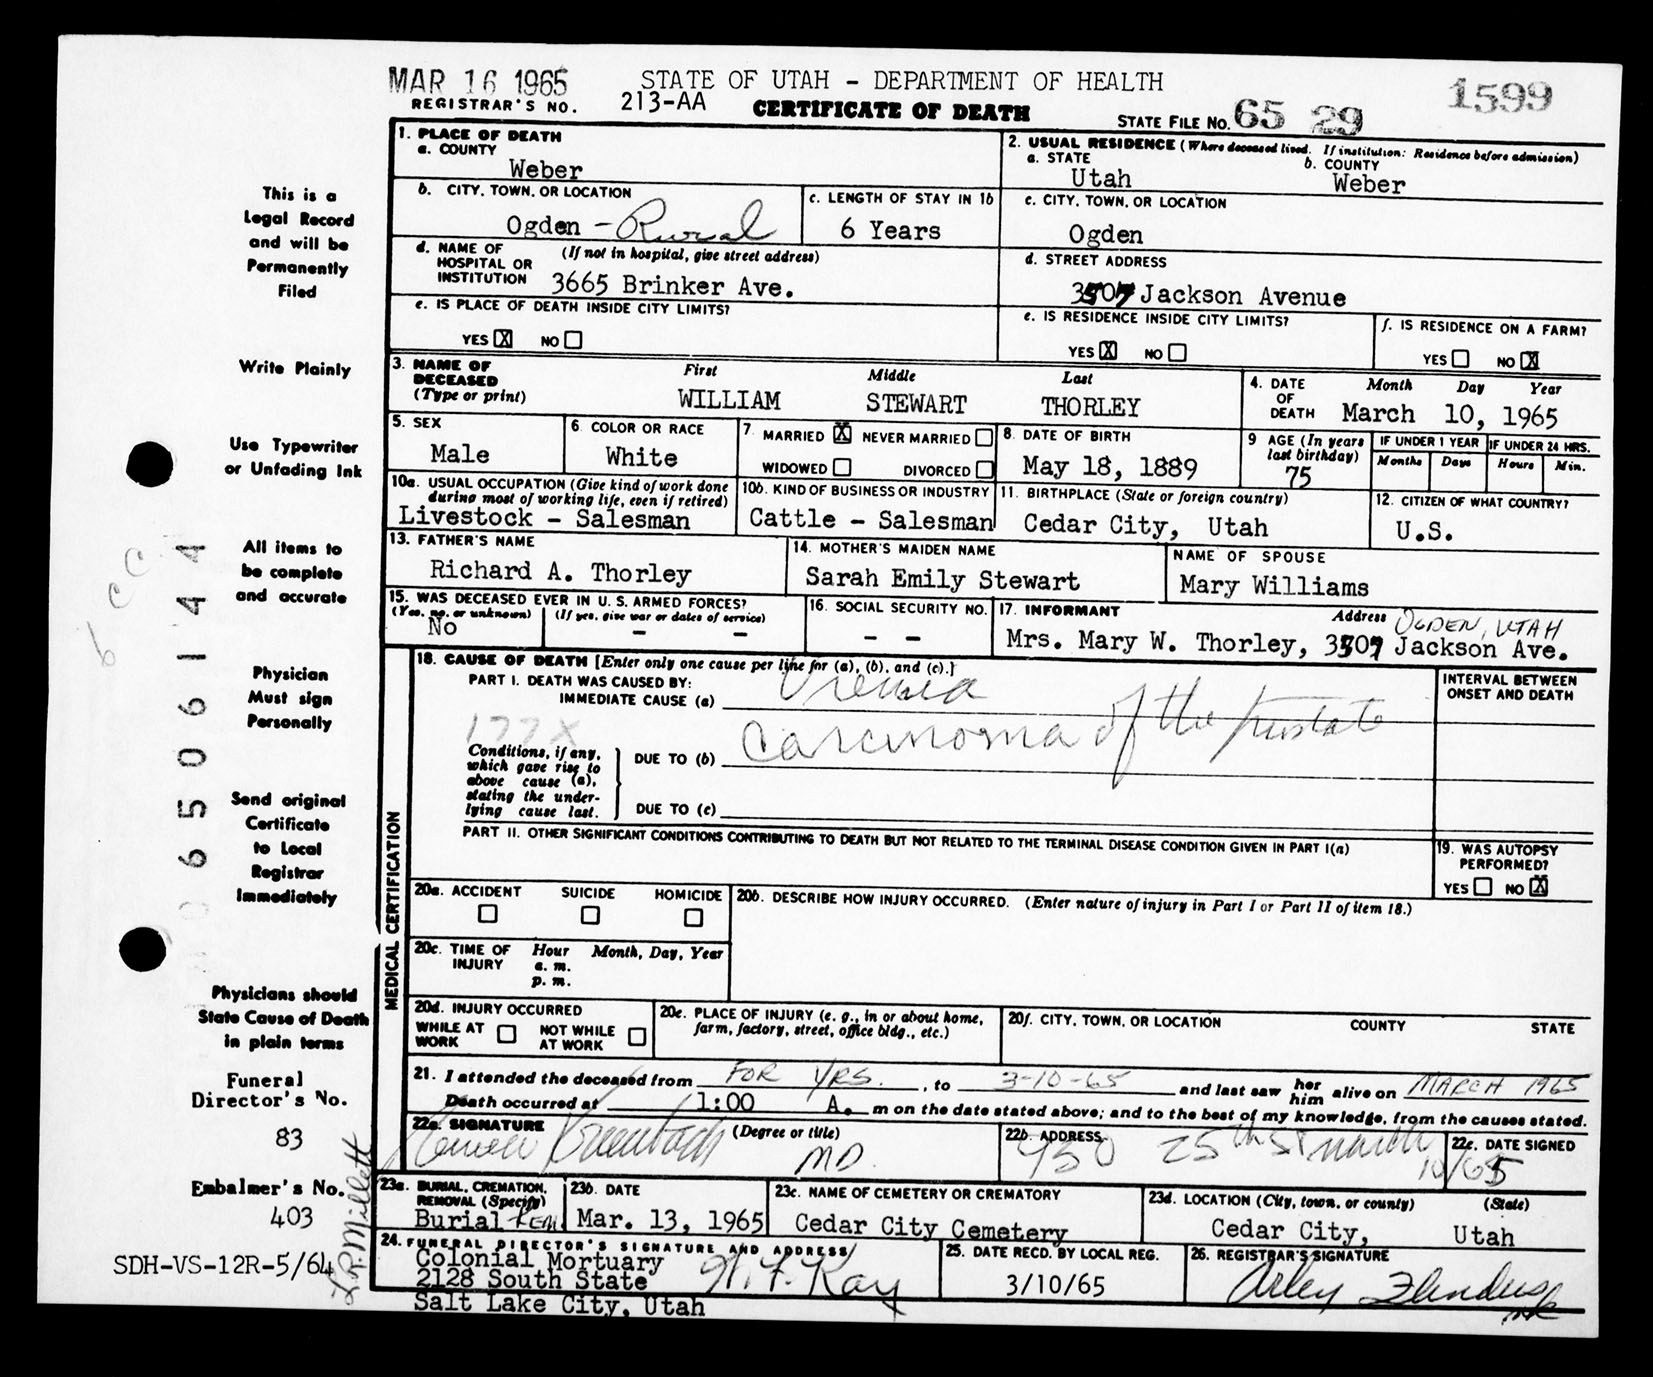 MAR 16 1965 STATE OF UTAH - DEPARTMENT OF HEALTH 1599
REGISTRAR'S NO. 213-AA CERTIFICATE OF DEATH STATE FILE NO. 65 29
1. PLACE OF DEATH
a. COUNTY
Weber
2. USUAL RESIDENCE (Where deceased lived. If institution: Residence before admission)
a. STATE b. COUNTY
Utah Weber
b. CITY, TOWN, OR LOCATION
Ogden - Rural
c. LENGTH OF STAY IN 1b
6 Years
c. CITY, TOWN, OR LOCATION
Ogden
d. NAME OF (If not in hospital, give street address)
HOSPITAL OR
INSTITUTION 3665 Brinker Ave.
d. STREET ADDRESS
3507 Jackson Avenue
e. IS PLACE OF DEATH INSIDE CITY LIMITS?
YES X NO
e. IS RESIDENCE INSIDE CITY LIMITS?
YES X NO
f. IS RESIDENCE ON A FARM?
YES NO X
3. NAME OF
DECEASED
(Type or print)
First Middle Last
WILLIAM STEWART THORLEY
4. DATE
OF
DEATH
Month Day Year
March 10, 1965
5. SEX
Male
6. COLOR OR RACE
White
7. MARRIED X NEVER MARRIED
WIDOWED DIVORCED
8. DATE OF BIRTH
May 18, 1889
9 AGE (In years
last birthday)
75
IF UNDER 1 YEAR
Months Days
IF UNDER 24 HRS.
Hours Min.
10a. USUAL OCCUPATION (Give kind of work done
during most of working life, even if retired)
Livestock - Salesman
10b. KIND OF BUSINESS OR INDUSTRY
Cattle - Salesman
11. BIRTHPLACE (State or foreign country)
Cedar City, Utah
12. CITIZEN OF WHAT COUNTRY?
U.S.
13. FATHER'S NAME
Richard A. Thorley
14. MOTHER'S MAIDEN NAME
Sarah Emily Stewart
NAME OF SPOUSE
Mary Williams
15. WAS DECEASED EVER IN U. S. ARMED FORCES?
(Yes, no, or unknown) (If yes, give war or dates of service)
No - -
16. SOCIAL SECURITY NO.
- -
17. INFORMANT Address OGDEN, UTAH
Mrs. Mary W. Thorley, 3507 Jackson Ave.
MEDICAL CERTIFICATION
18. CAUSE OF DEATH [Enter only one cause per line for (a), (b), and (c).]
PART I. DEATH WAS CAUSED BY:
IMMEDIATE CAUSE (a) Uremia
177X
Conditions, if any,
which gave rise to
above cause (a),
stating the under-
lying cause last.
DUE TO (b) Carcinoma of the prostate
DUE TO (c)
INTERVAL BETWEEN
ONSET AND DEATH
PART II. OTHER SIGNIFICANT CONDITIONS CONTRIBUTING TO DEATH BUT NOT RELATED TO THE TERMINAL DISEASE CONDITION GIVEN IN PART I(a)
19. WAS AUTOPSY
PERFORMED?
YES NO X
20a. ACCIDENT SUICIDE HOMICIDE
20b. DESCRIBE HOW INJURY OCCURRED. (Enter nature of injury in Part I or Part II of item 18.)
20c. TIME OF Hour Month, Day, Year
INJURY a. m.
p. m.
20d. INJURY OCCURRED
WHILE AT WORK NOT WHILE AT WORK
20e. PLACE OF INJURY (e. g., in or about home,
farm, factory, street, office bldg., etc.)
20f. CITY, TOWN, OR LOCATION COUNTY STATE
21. I attended the deceased from FOR YRS. , to 3-10-65 and last saw her him alive on MARCH 1965
Death occurred at 1:00 A. m on the date stated above; and to the best of my knowledge, from the causes stated.
22a. SIGNATURE (Degree or title)
MD
22b. ADDRESS
25th St
22c. DATE SIGNED
March 10/65
23a. BURIAL, CREMATION,
REMOVAL (Specify)
Burial Rem.
23b. DATE
Mar. 13, 1965
23c. NAME OF CEMETERY OR CREMATORY
Cedar City Cemetery
23d. LOCATION (City, town, or county) (State)
Cedar City, Utah
24. FUNERAL DIRECTOR'S SIGNATURE AND ADDRESS
Colonial Mortuary
2128 South State
Salt Lake City, Utah
W. F. Kay
25. DATE RECD. BY LOCAL REG.
3/10/65
26. REGISTRAR'S SIGNATURE
Arley
This is a
Legal Record
and will be
Permanently
Filed
Write Plainly
Use Typewriter
or Unfading Ink
All items to
be complete
and accurate
Physician
Must sign
Personally
Send original
Certificate
to Local
Registrar
Immediately
Physicians should
State Cause of Death
in plain terms
Funeral
Director's No.
83
Embalmer's No.
403
SDH-VS-12R-5/64
L.R. Millett
06506144